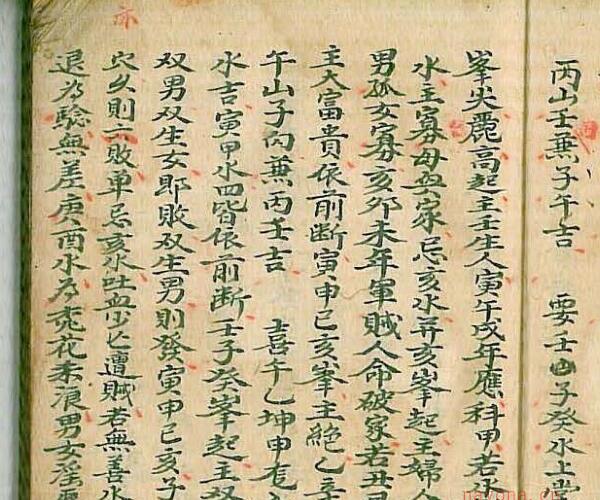 丙山壬兼子午吉 要壬山子癸水上堂
峯尖麗高起主壬生人寅午戌年應科甲若水
水主寡母無家忌亥水弄亥峯起主婦人
男孤女寡亥卯未年軍賊人命破家若丑
主大富貴依前斷寅申巳亥峯主絶乙辛
午山子向兼丙壬吉 喜午乙坤申
水吉寅甲水四皆依前斷壬子癸峯起主双
双男双生女即敗双生男則發寅申巳亥子
穴久則一敗單忌亥水吐血少亡遭賊若無善水
退为驗無差庚酉水为花柔浪男女淫